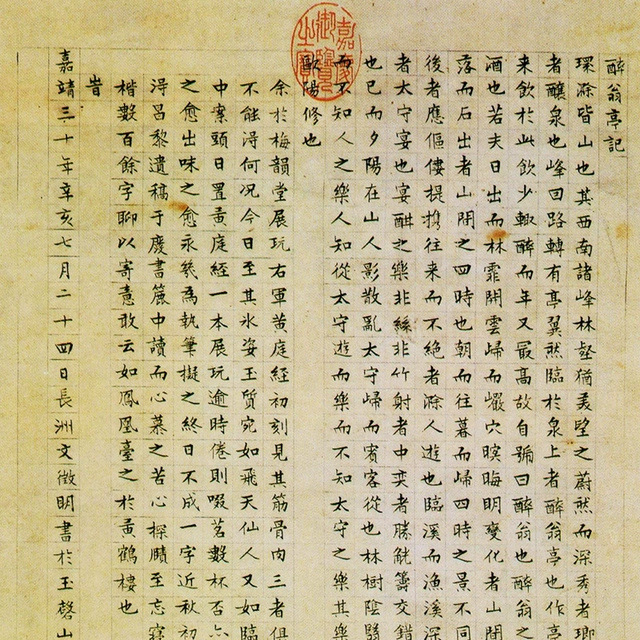 醉翁亭記
環滁皆山也其西南諸峰林壑猶美望之蔚然而深秀者瑯
者釀泉也峰回路轉有亭翼然臨於泉上者醉翁亭也作亭
來飲於此飲少輒醉而年又最高故自號曰醉翁也醉翁之
酒也若夫日出而林霏開雲歸而巖穴暝晦明變化者山閒
落而石出者山閒之四時也朝而往暮而歸四時之景不同
後者應傴僂提攜往來而不絕者滁人遊也臨溪而漁溪深
者太守宴也宴酣之樂非絲非竹射者中奕者勝觥籌交錯
也已而夕陽在山人影散亂太守歸而賓客從也林樹陰翳
而不知人之樂人知從太守遊而樂而不知太守之樂其樂
歐陽修也
嘉慶御覽之寶
余於梅韻堂展玩右軍黃庭經初刻見其筋骨肉三者俱
不能淂何況今日至其冰姿玉質宛如飛天仙人又如臨
中案頭日置黃庭經一本展玩逾時倦則啜茗數杯否亦
之愈出味之愈永幾為執筆擬之終日不成一字近秋初
淂昌黎遺稿于廢書簏中讀而心慕之苦心探賾至忘寢
楷數百餘字聊以寄意敢云如鳳凰臺之於黃鶴樓也
旹
嘉靖三十年辛亥七月二十四日長洲文徵明書於玉磬山